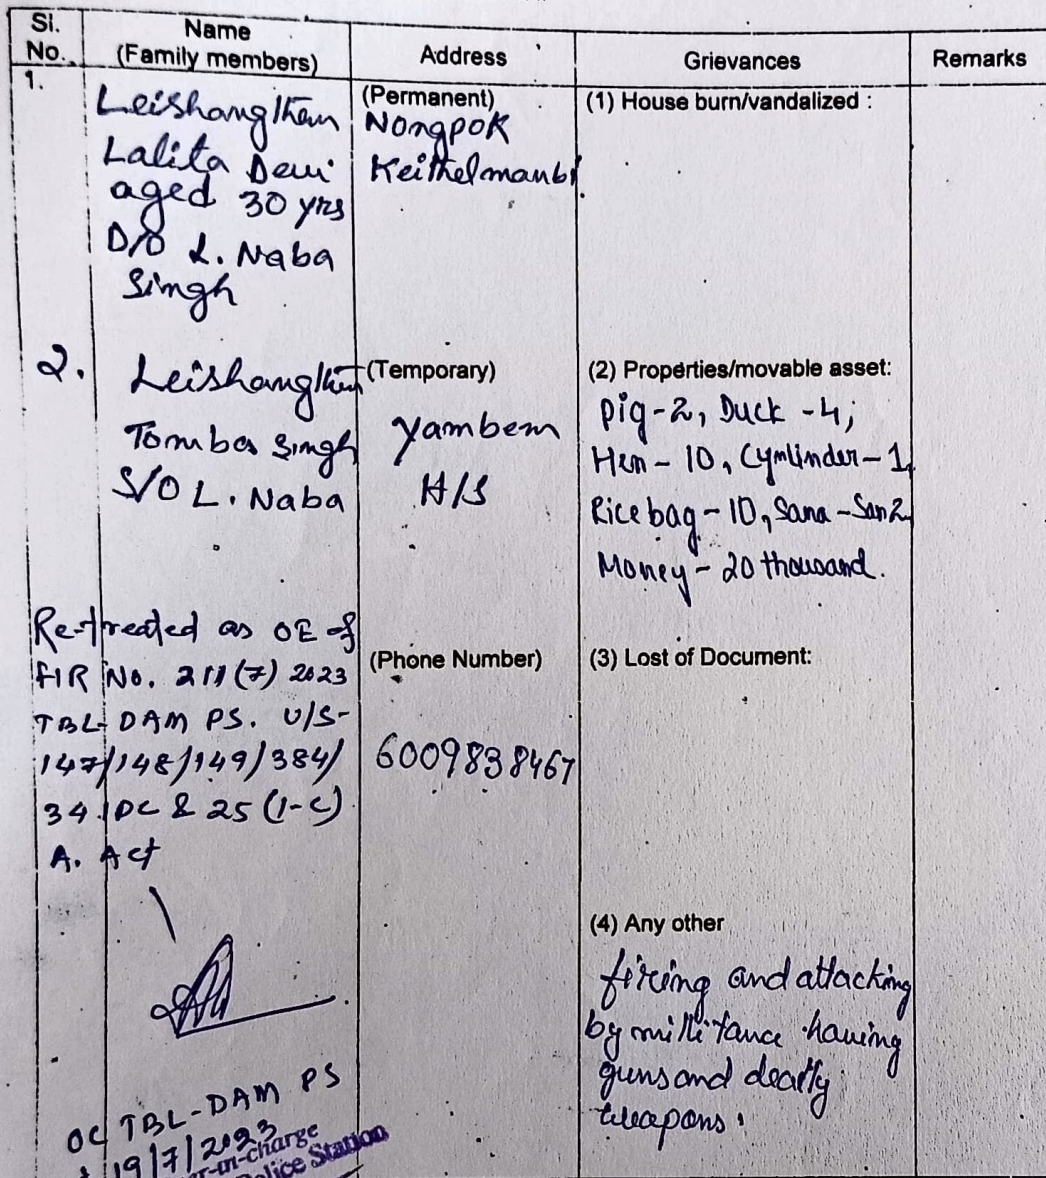 Sl.
No.
Name
(Family members)
Address
Grievances
Remarks
1.
Leishangthem
Lalita Devi
aged 30 yrs
D/o L. Naba
Singh
(Permanent)
Nongpok
Keithelmanbi
(1) House burn/vandalized :
2.
Leishangthem
Tomba Singh
S/O L. Naba
(Temporary)
Yambem
H/S
(2) Properties/movable asset:
Pig-2, Duck-4;
Hen-10, Cymlinder-1
Rice bag-10, Sana-San 2
Money-20 thousand.
Re-treated as OE of
FIR No. 211(7) 2023
TBL-DAM PS. U/S-
147/148/149/384/
34 IPC & 25 (1-C)
A. Act
(Phone Number)
6009838467
(3) Lost of Document:
(4) Any other
fireing and attacking
by millitance having
guns and deadly
weapons.
OC TBL-DAM PS
19/7/2023
-in-charge
Police Station